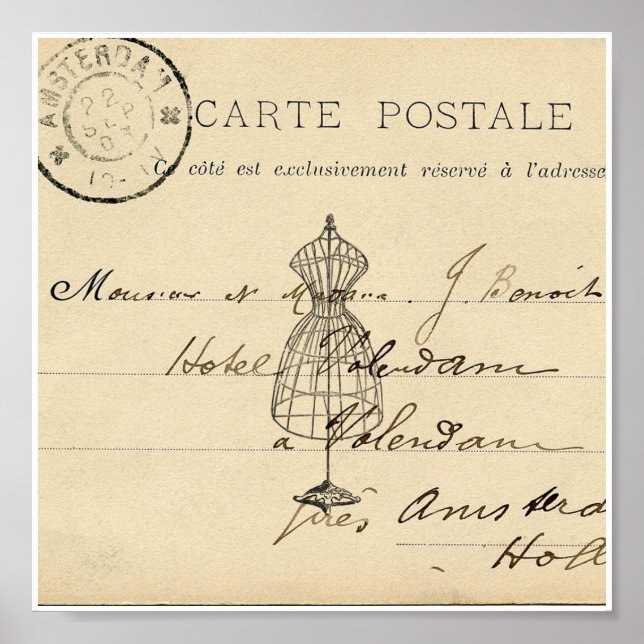 AMSTERDAM
22 SEP 03
CARTE POSTALE
Ce côté est exclusivement réservé à l'adresse
Monsieur et Madame. J. Benoit
Hotel Volendam
a Volendam
près Amsterd
Holl